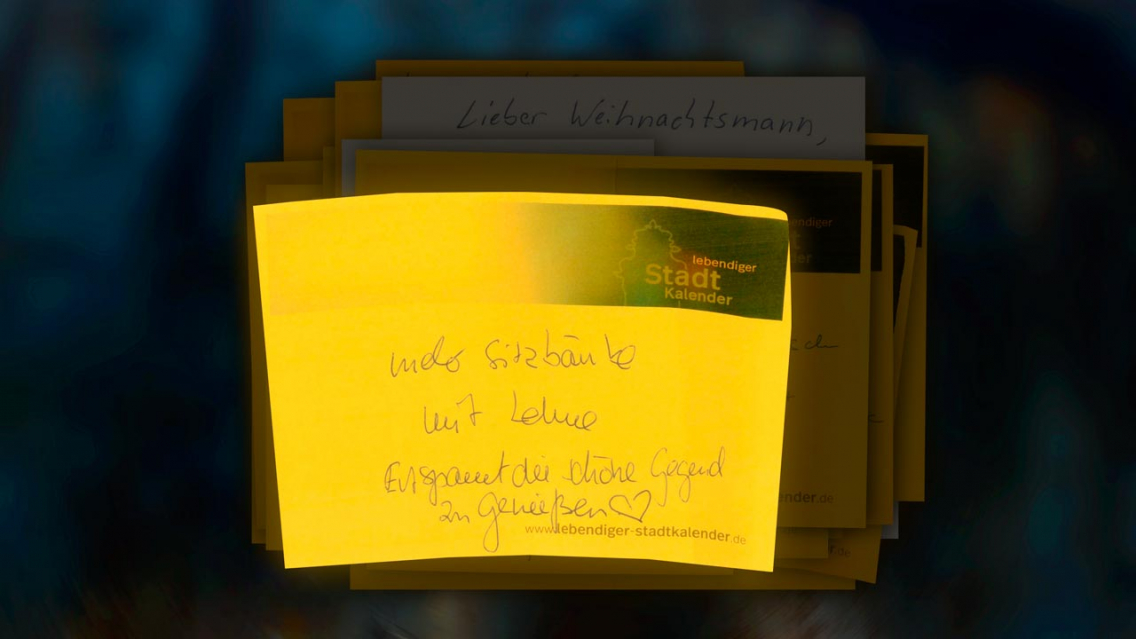 Lieber Weihnachtsmann,
lebendiger
Stadt
Kalender
mehr Sitzbänke
mit Lehne
Entspannt die schöne Gegend
zu genießen♡
www.lebendiger-stadtkalender.de